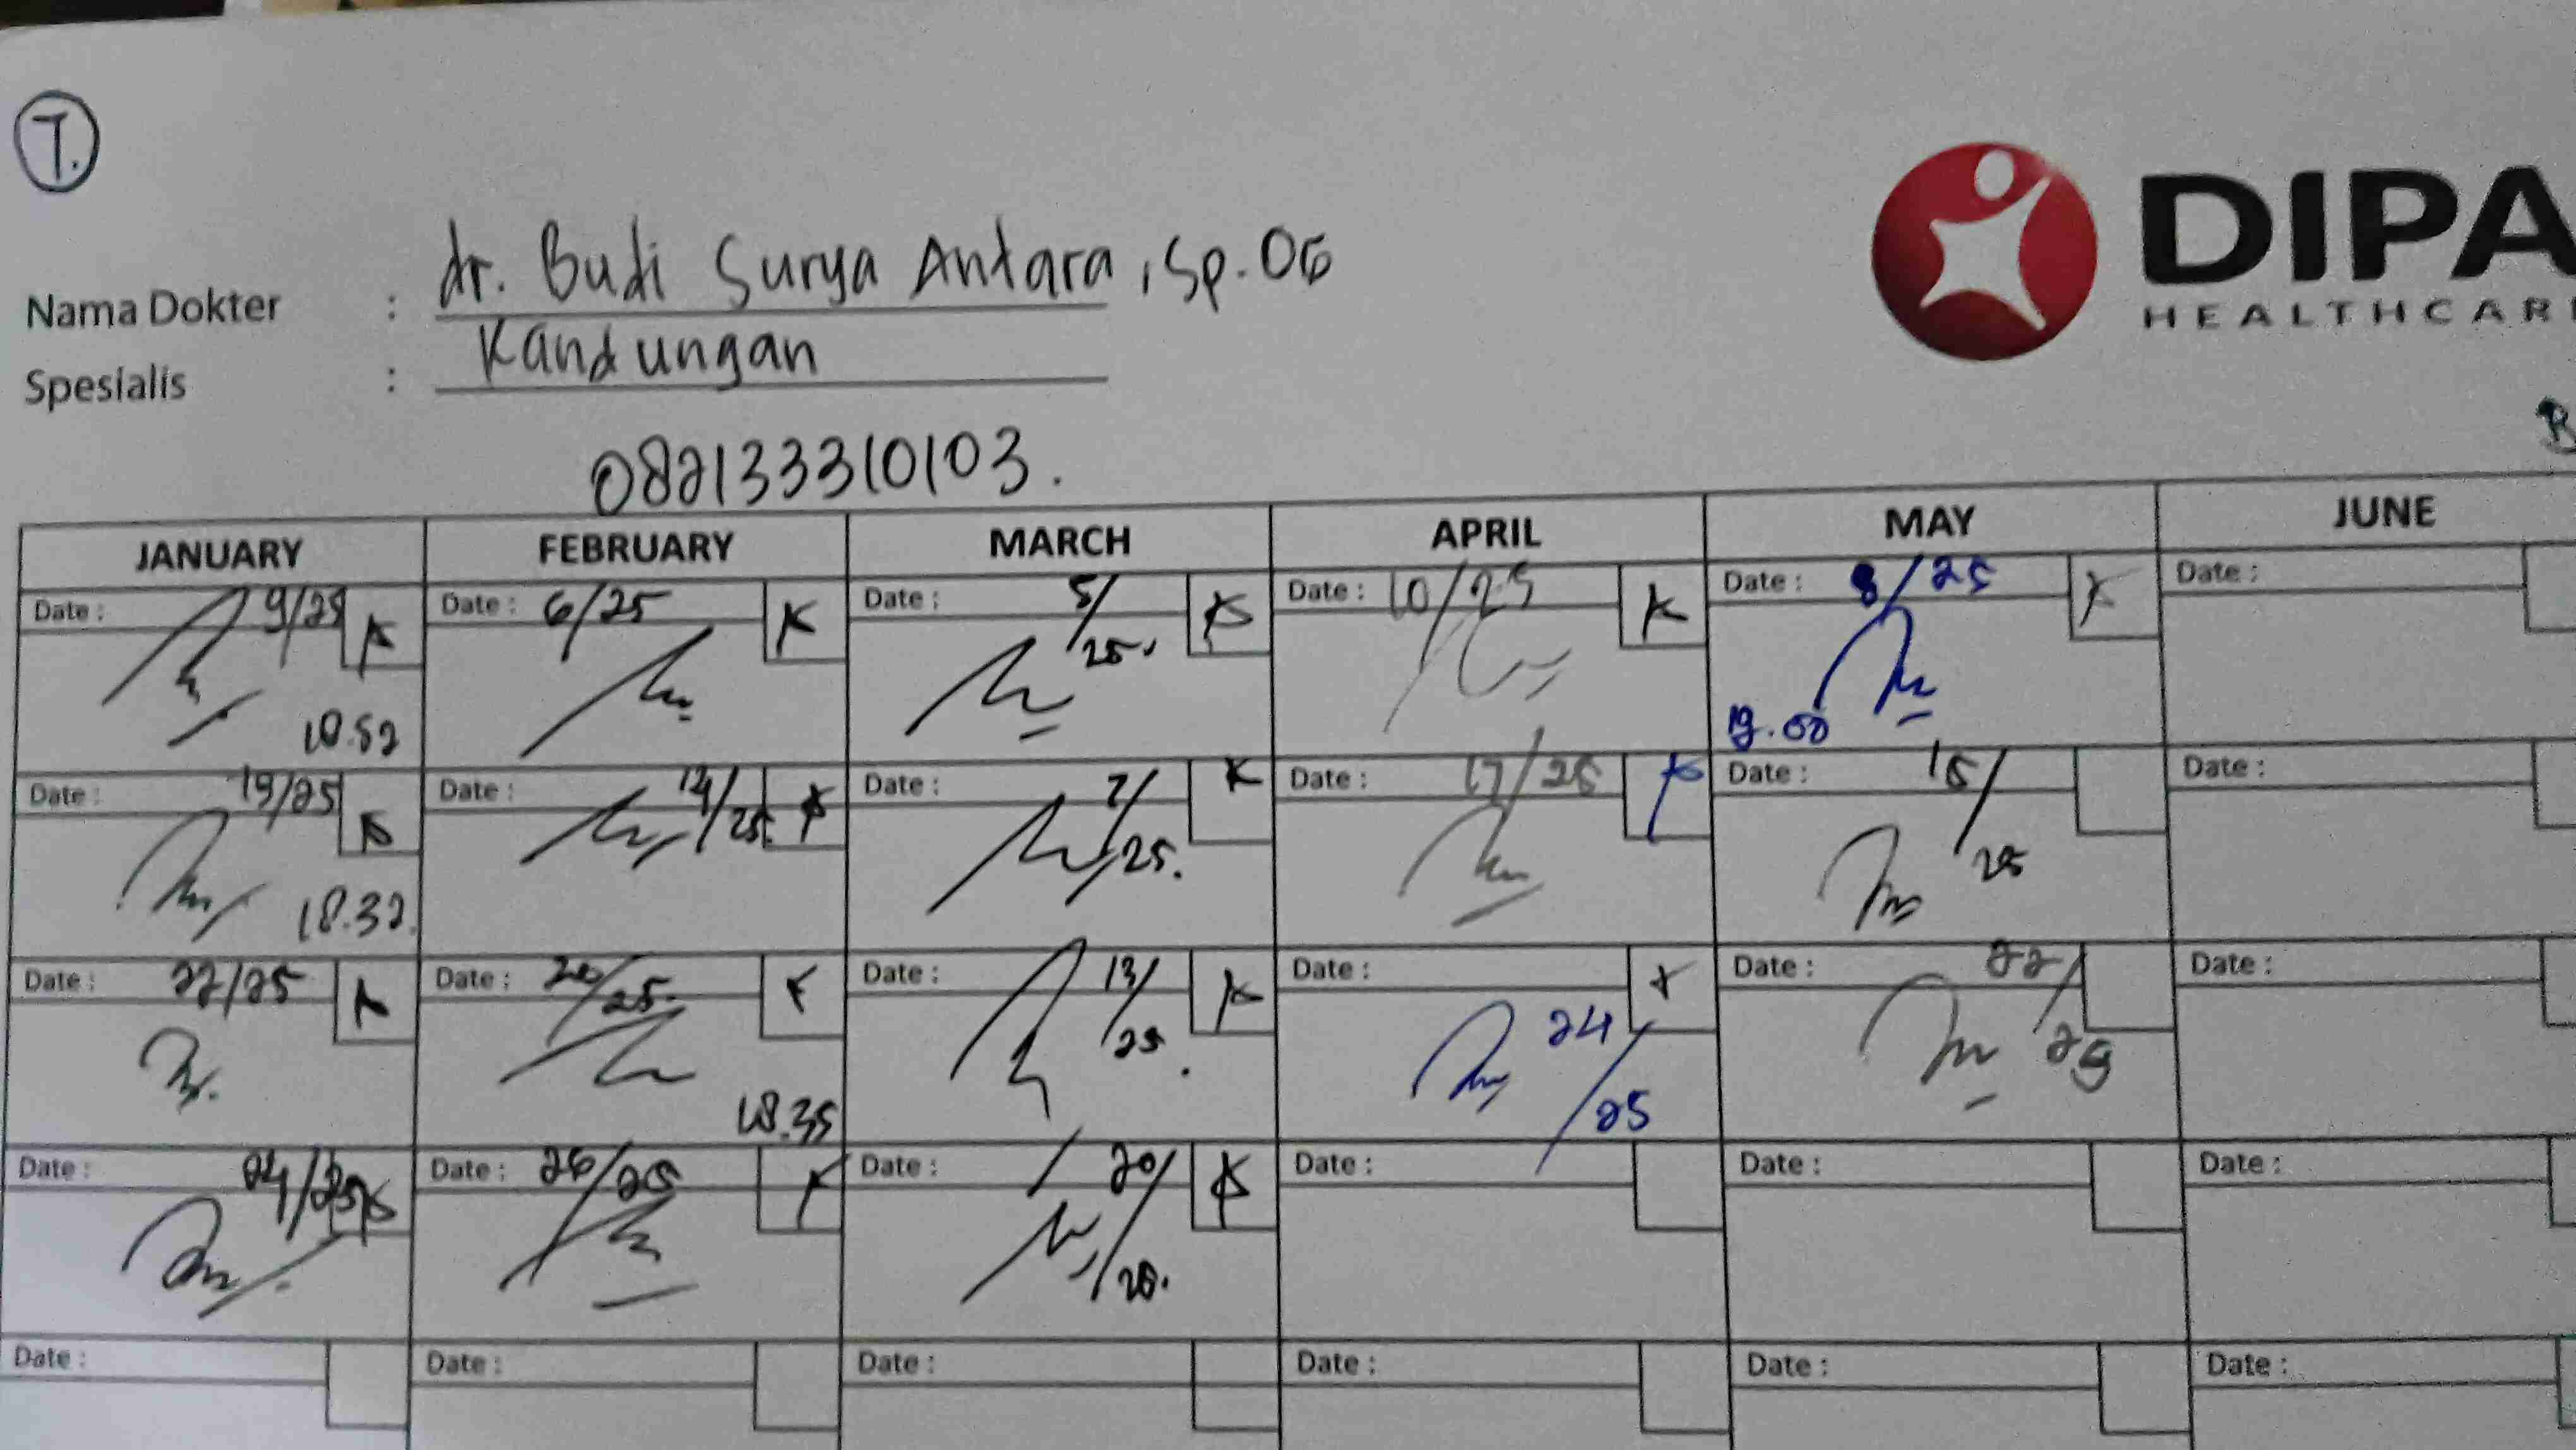 T.
DIPA
HEALTHCAR
Nama Dokter : dr. Budi Surya Antara, Sp.OG
Spesialis : Kandungan
082133310103.
JANUARY FEBRUARY MARCH APRIL MAY JUNE
Date : 9/25 Date : 6/25 Date : 5/25. Date : 10/25 Date : 8/25 Date :
18.52 19.00
Date : 19/25 Date : 14/25 Date : 7/25. Date : 17/25 Date : 15/25 Date :
18.32.
Date : 22/25 Date : 20/25. Date : 13/25. Date : 24/25 Date : 22/25 Date :
18.35
Date : 24/25 Date : 26/25 Date : 20/25. Date : Date : Date :
Date : Date : Date : Date : Date : Date :